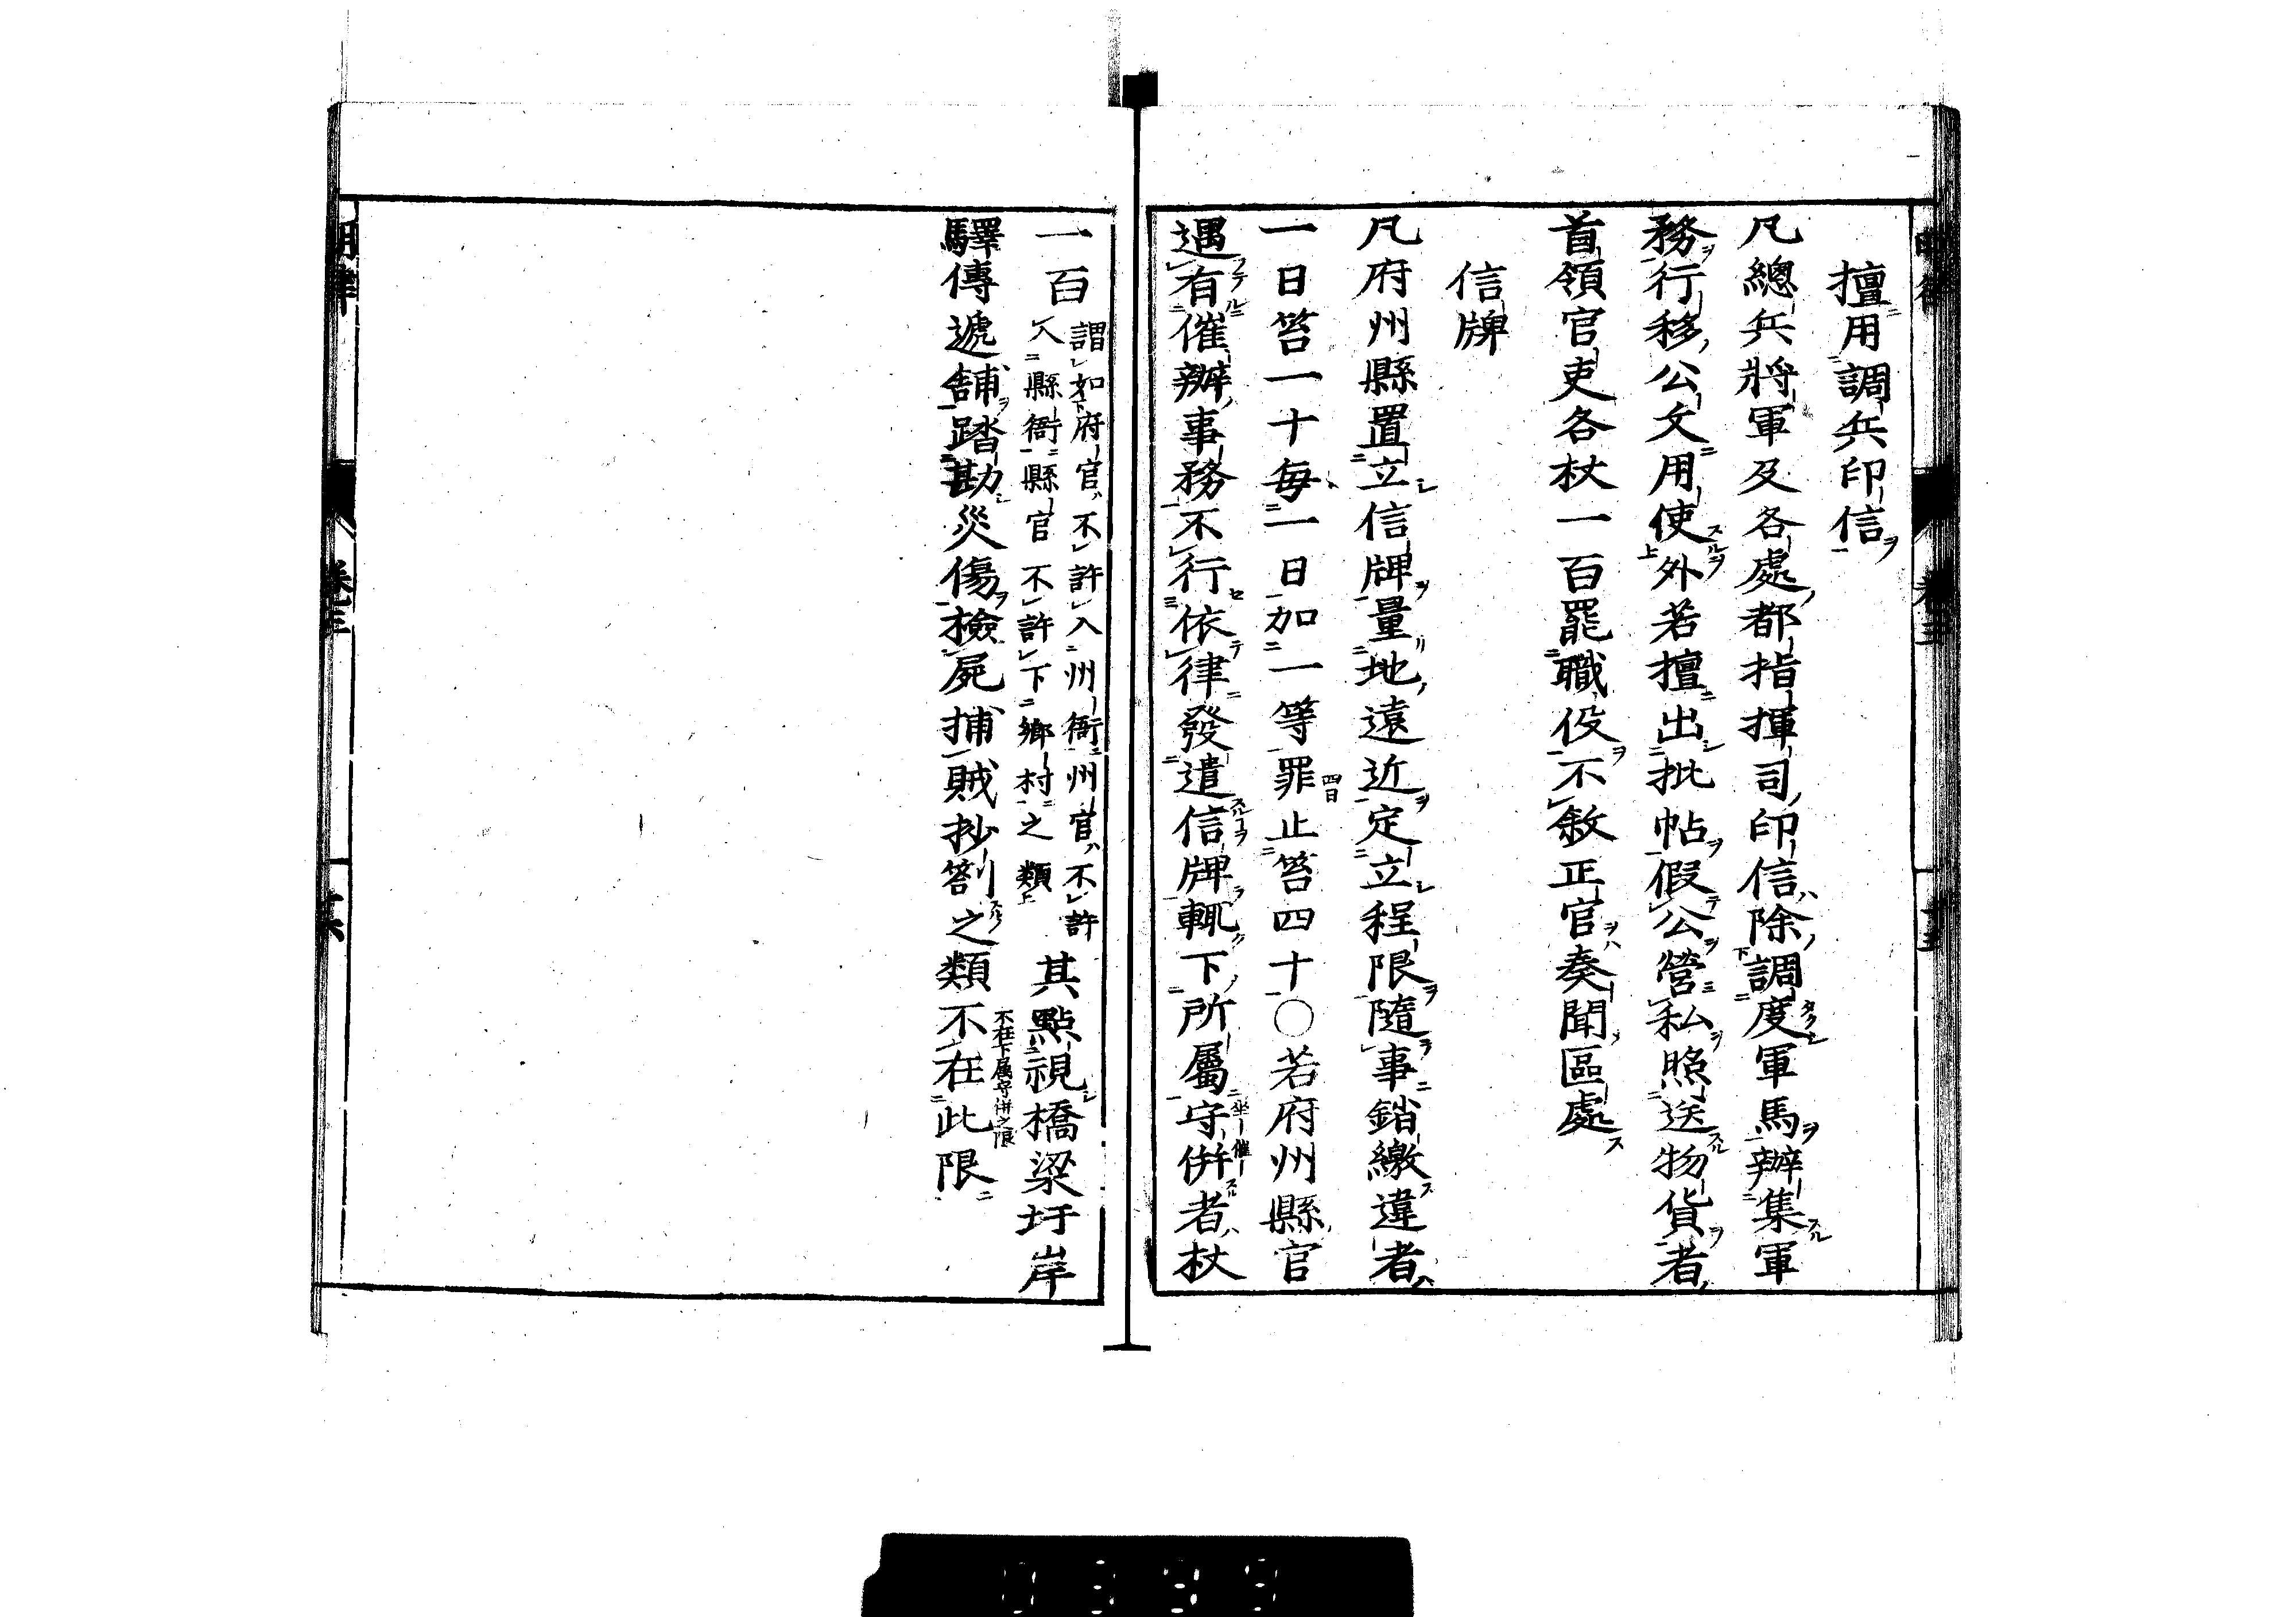 擅用調兵印信
凡總兵將軍及各處都指揮司印信除調度軍馬辦集軍
務行移公文用使外若擅出批帖假公營私照送物貨者
首領官吏各杖一百罷職役不敘正官奏聞區處
信牌
凡府州縣置立信牌量地遠近定立程限隨事銷繳違者
一日笞一十每一日加一等罪止笞四十○若府州縣官
四日
遇有催辦事務不行依律發遣信牌輒下所屬守併者杖
一百
謂如府官不許入州衙州官不許
入縣衙縣官不許下鄉村之類
其點視橋梁圩岸
驛傳遞舖踏勘災傷檢屍捕賊抄劄之類不在此限
不在下属守併之限
明律 卷三